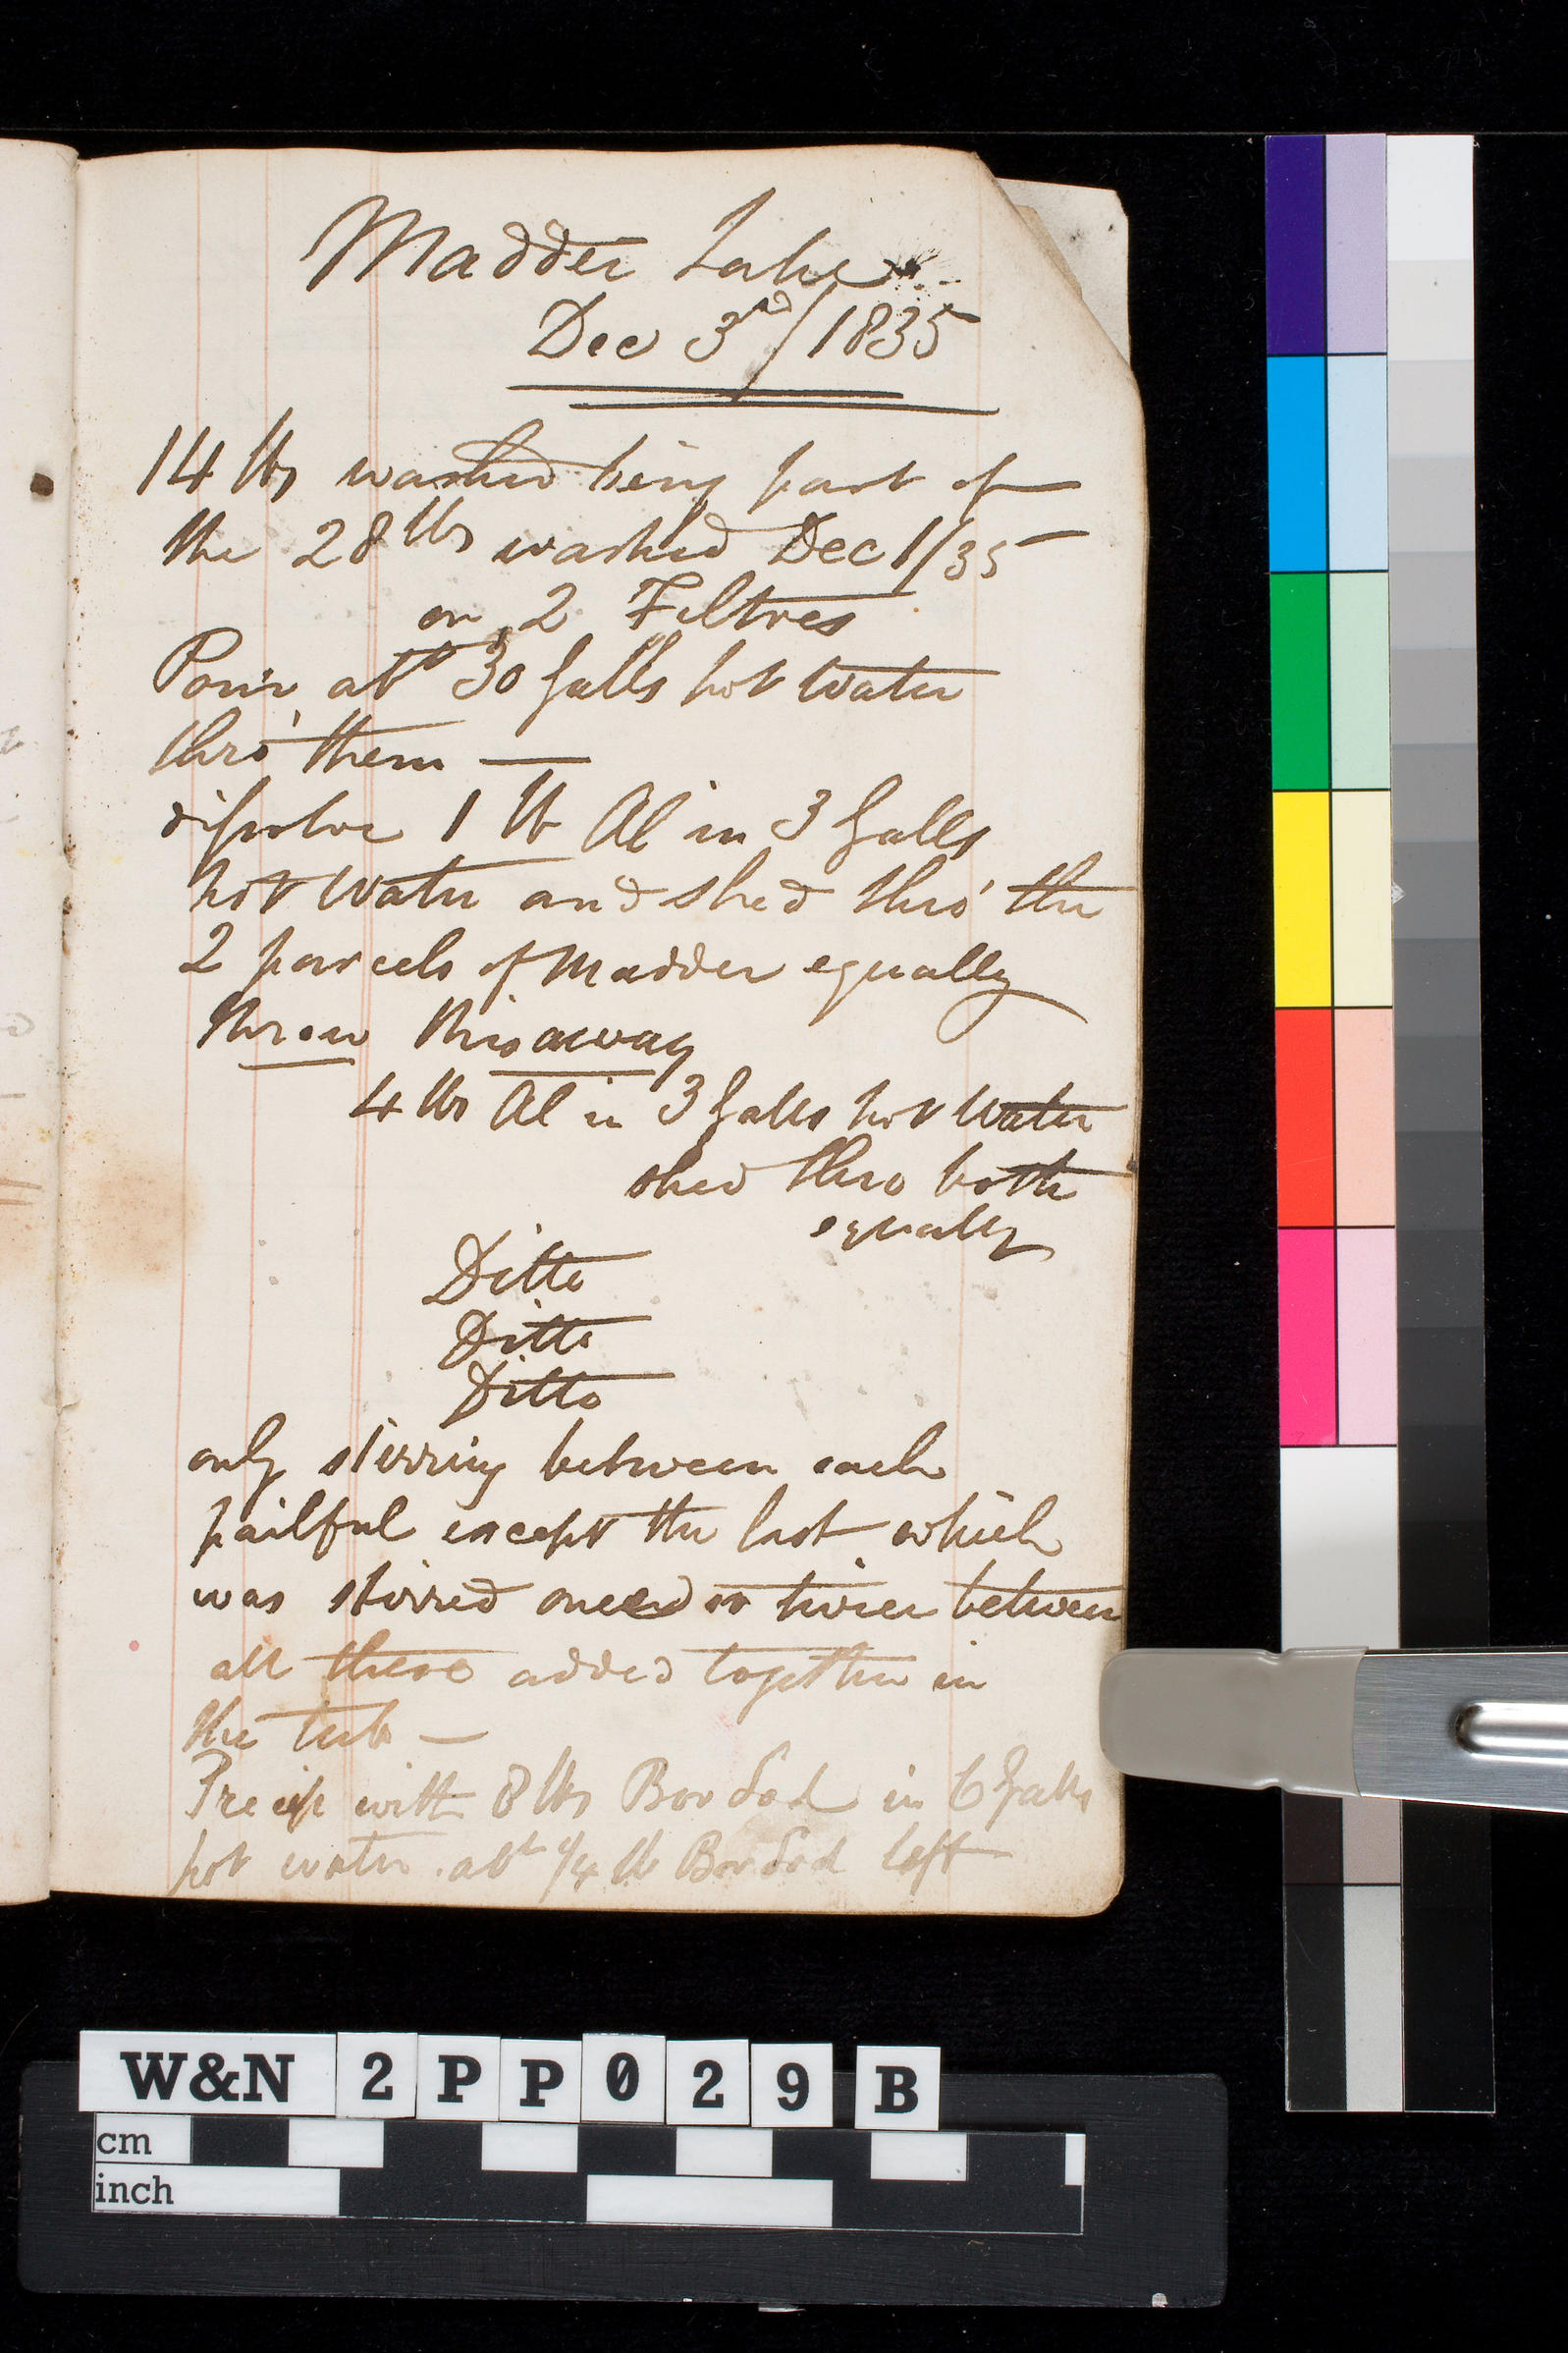 Madder Lake
Dec 3rd/1835
14 lbs washed being part of
the 28 lbs washed Dec 1/35
on 2 Filtres
Pour abt 30 Galls hot Water
thro' them —
dissolve 1 lb Al in 3 Galls
hot Water and shed thro' the
2 parcels of Madder equally
threw this away
4 lbs Al in 3 Galls hot Water
shed thro both
equally
Ditto
Ditto
Ditto
only stirring between each
pailful except the last which
was stirred once or twice between
all these added together in
the tub —
Precip with 8 lbs Bor Sod in 6 Galls
hot water. abt 1/4 lb Bor Sod left
W&N 2PP029 B
cm
inch